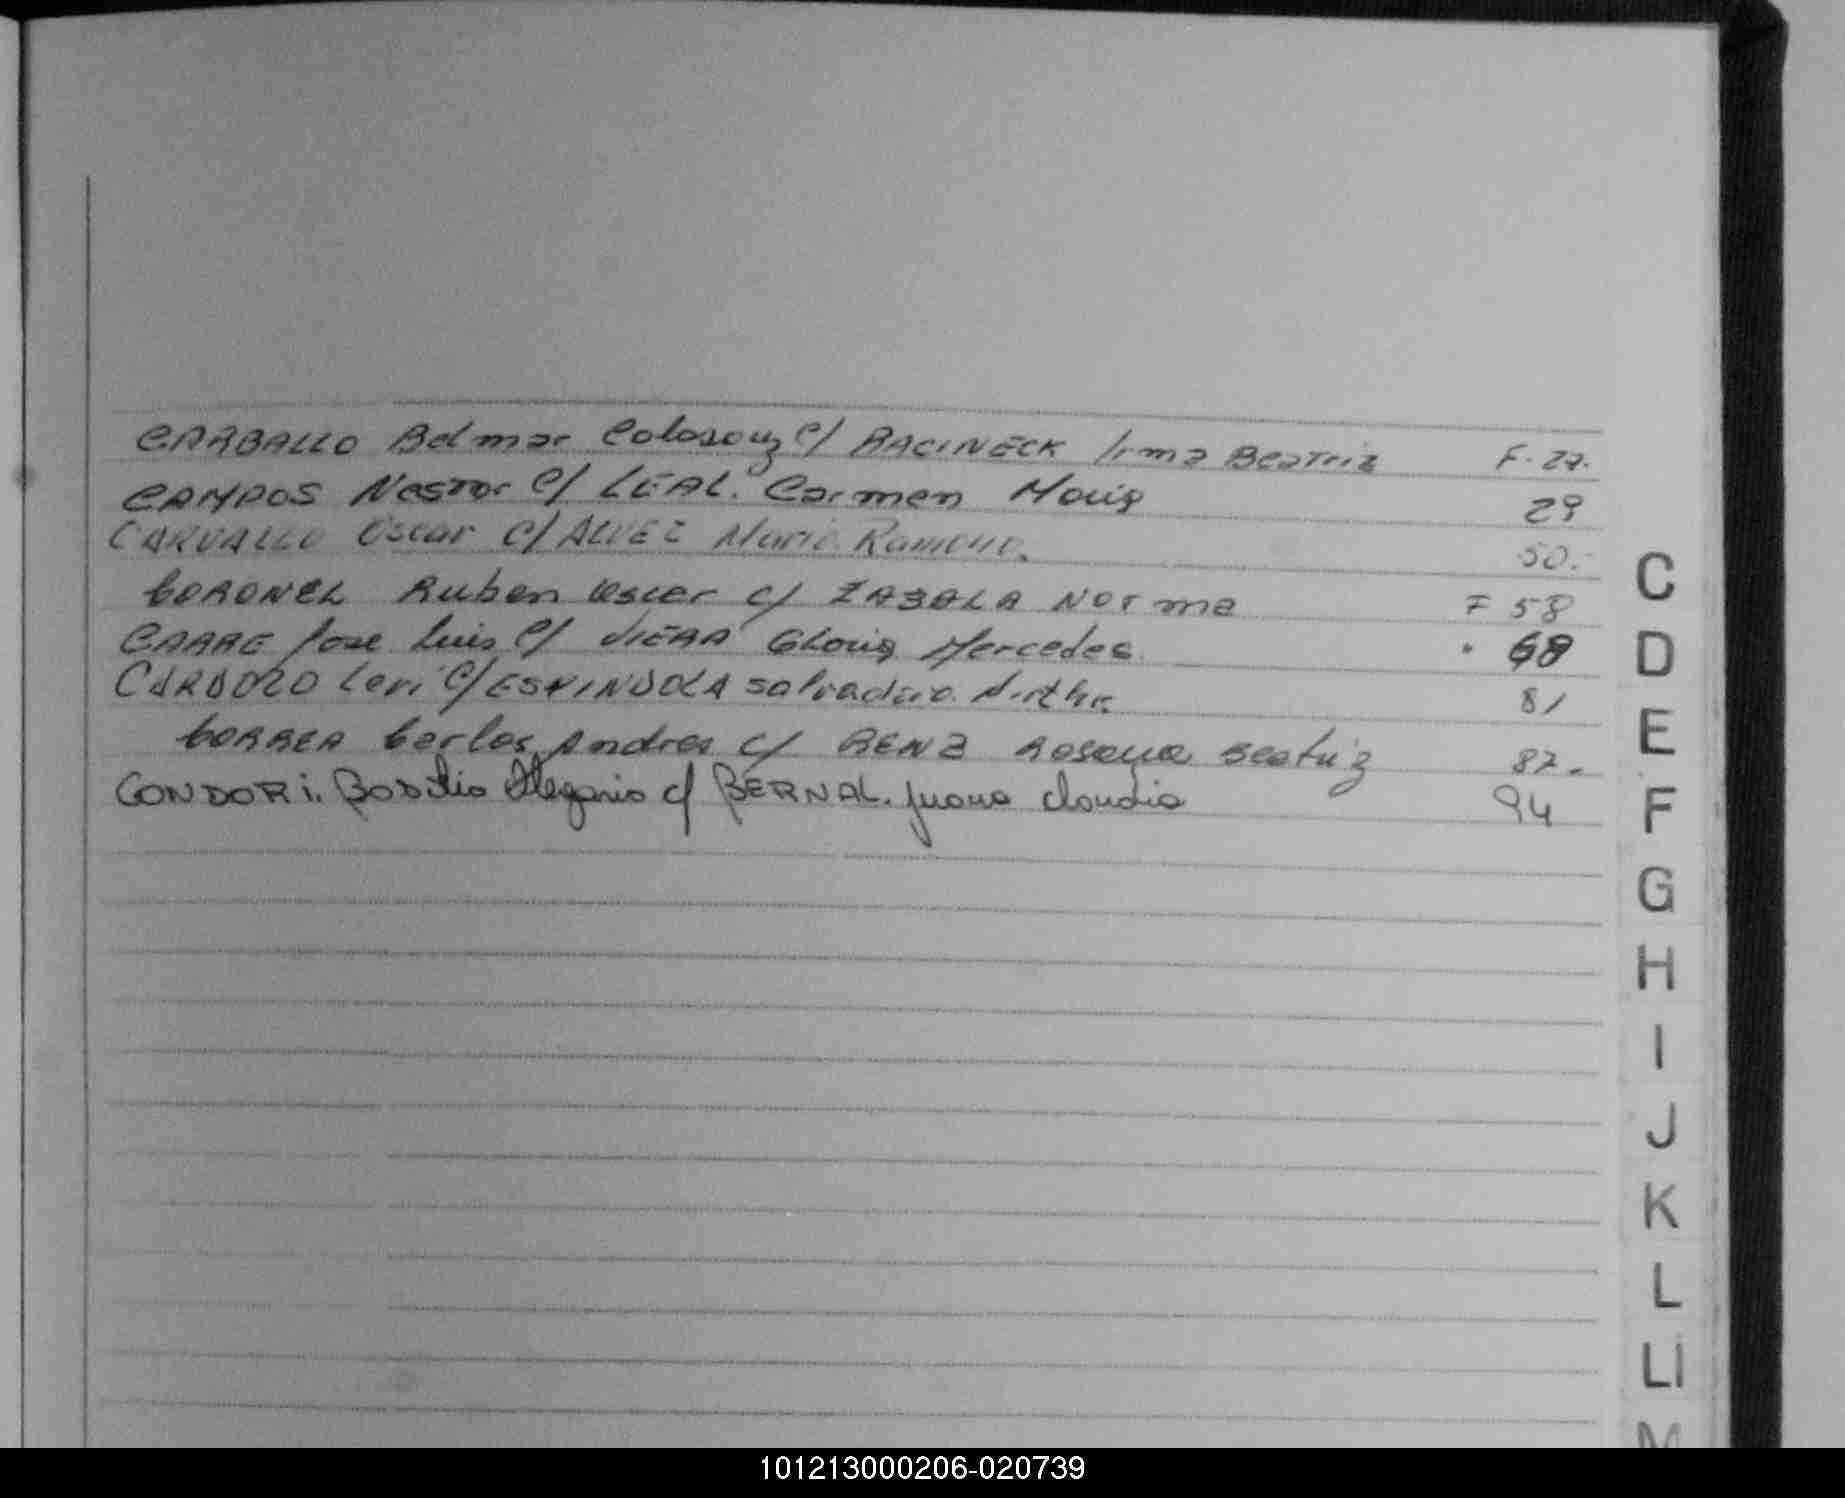 CARBALLO Belmar c/ RACINECK Irma Beatriz F. 27.
CAMPOS Nestor c/ LEAL. Carmen 29
CARVALLO Oscar c/ ALVEZ Maria Ramona. 50.
CORONEL Ruben Oscar c/ ZABALA NORma F 58
CARRE Jose Luis c/ VIERA Gloria Mercedes. " 68
CARDOZO c/ ESPINDOLA 81
CORREA Carlos Andres c/ BENZ Beatriz 87.
CONDORi. Basilio Olegario c/ BERNAL. Juana Claudia 94
C
D
E
F
G
H
I
J
K
L
Ll
M
101213000206-020739